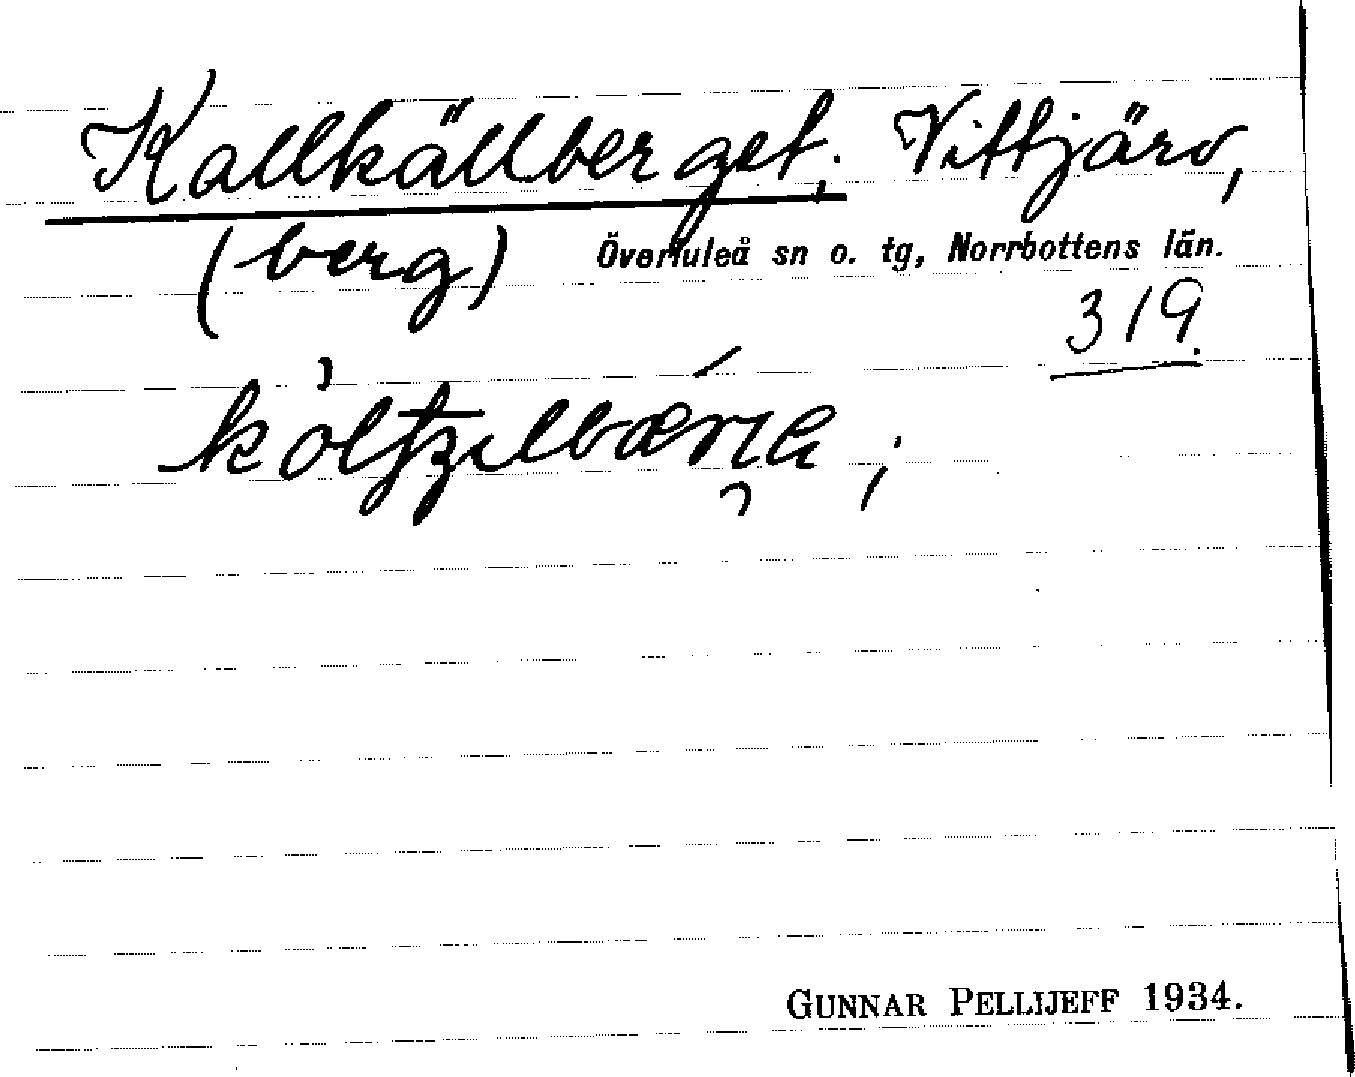 Kallkällberget, Vittjärv,
(berg) Överluleå sn o. tg, Norrbottens län.
319.
GUNNAR PELLIJEFF 1934.